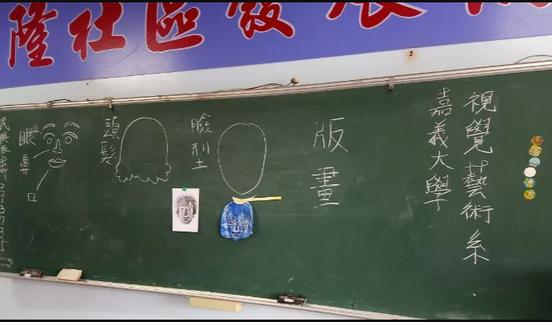 隆社區發展
嘉義大學
視覺藝術系
版畫
臉型
頭髮
眼鼻口